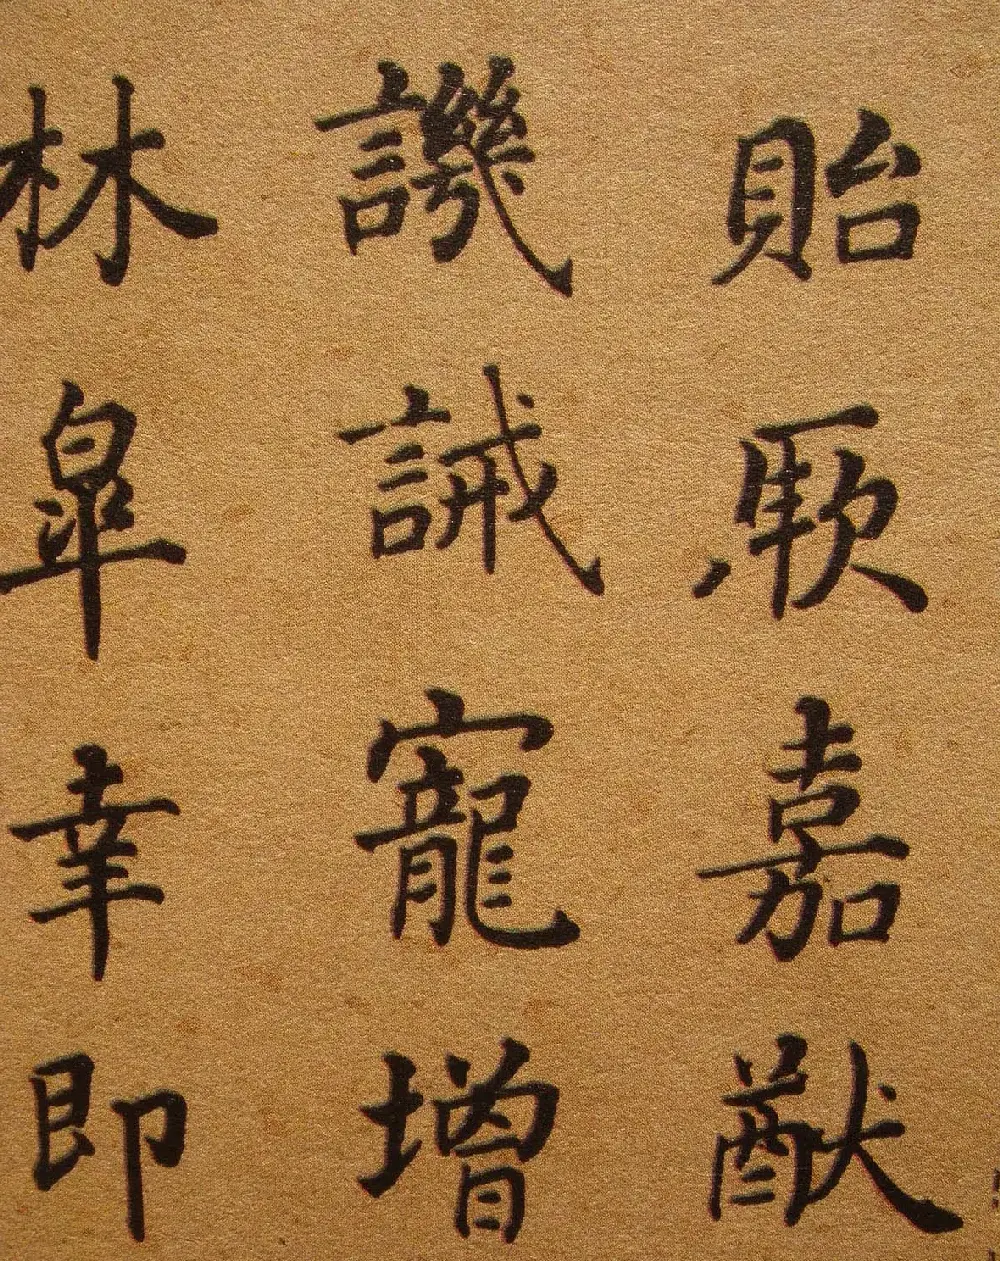 貽厥嘉猷
譏誡寵增
林皐幸即